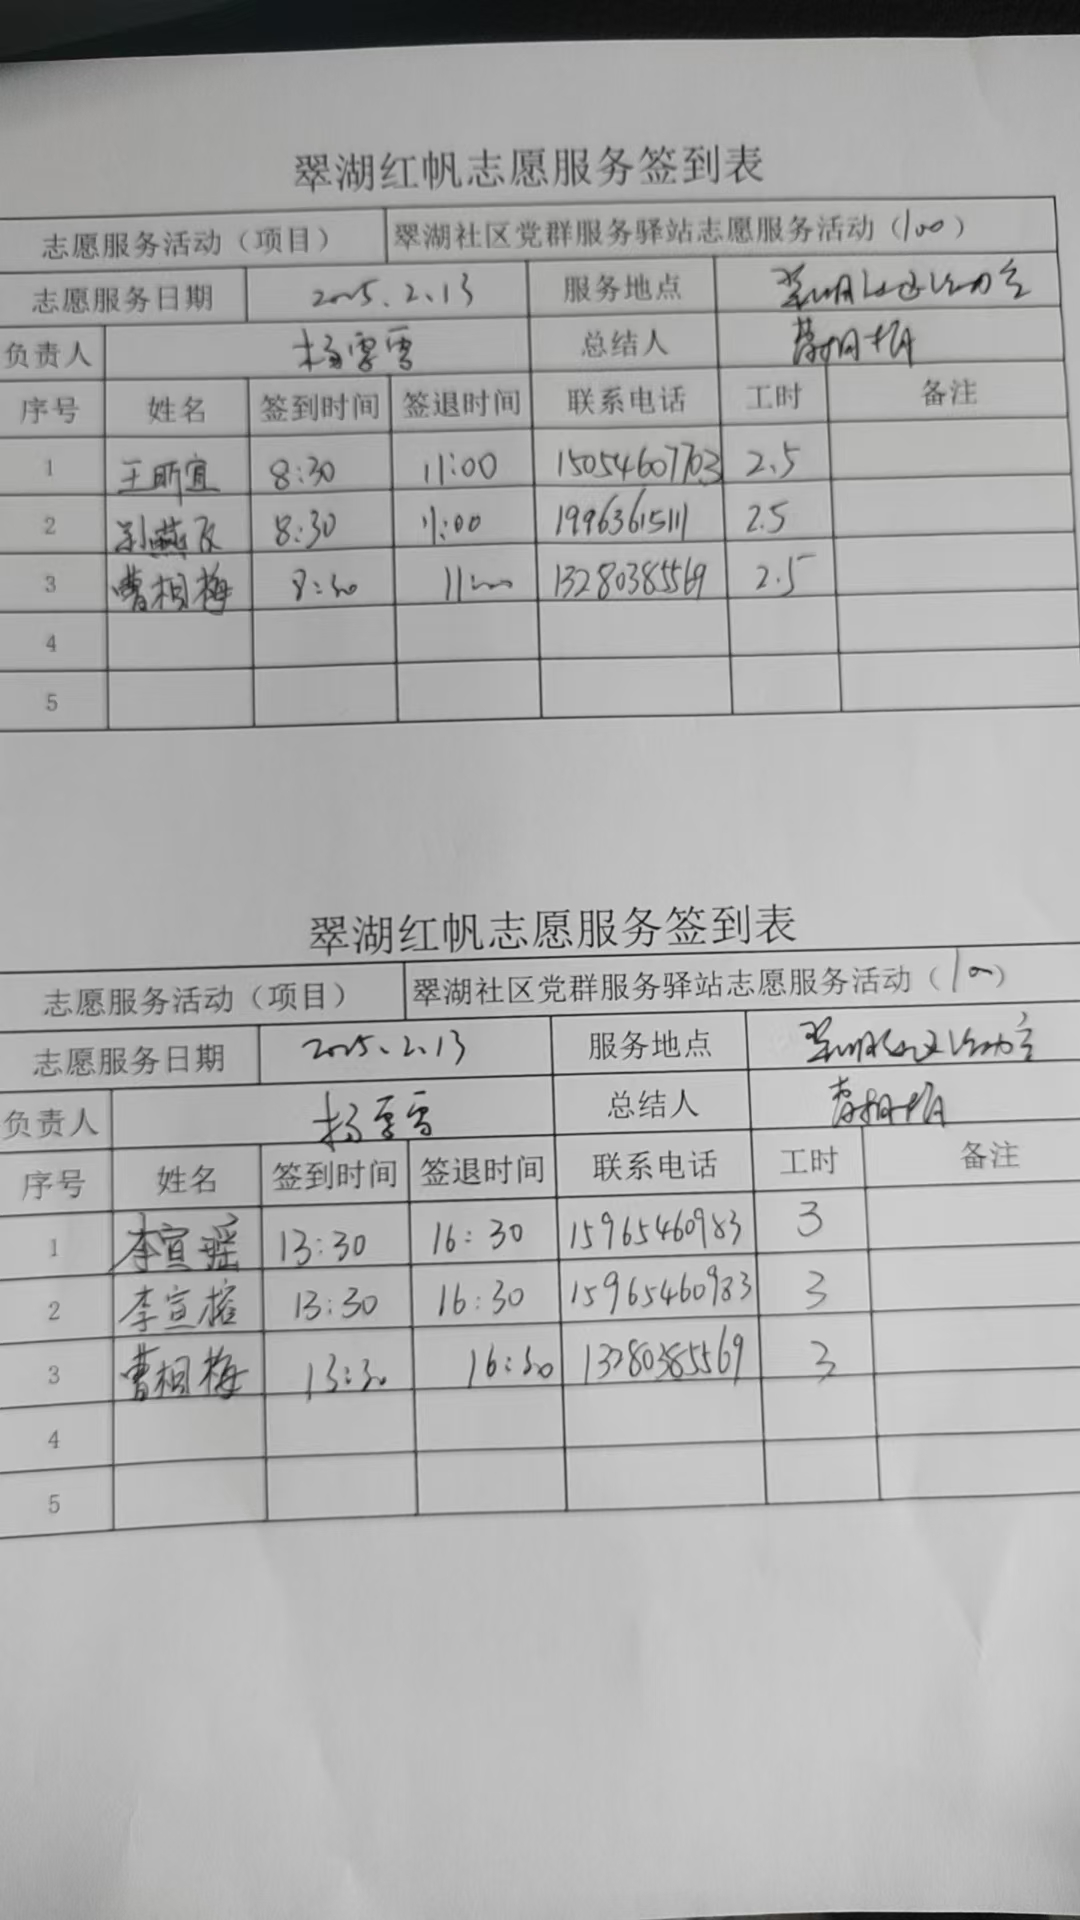 翠湖红帆志愿服务签到表
志愿服务活动（项目） 翠湖社区党群服务驿站志愿服务活动（100）
志愿服务日期 2025.2.13 服务地点 翠湖社区活动室
负责人 杨雪雪 总结人 曹相梅
序号 姓名 签到时间 签退时间 联系电话 工时 备注
1 王昕宜 8:30 11:00 15054607703 2.5
2 8:30 11:00 19963615111 2.5
3 曹相梅 8:30 11:00 13280385569 2.5
4
5
翠湖红帆志愿服务签到表
志愿服务活动（项目） 翠湖社区党群服务驿站志愿服务活动（100）
志愿服务日期 2025.2.13 服务地点 翠湖社区活动室
负责人 杨雪雪 总结人 曹相梅
序号 姓名 签到时间 签退时间 联系电话 工时 备注
1 李宣瑶 13:30 16:30 15965460983 3
2 李宣榕 13:30 16:30 15965460983 3
3 曹相梅 13:30 16:30 13280385569 3
4
5